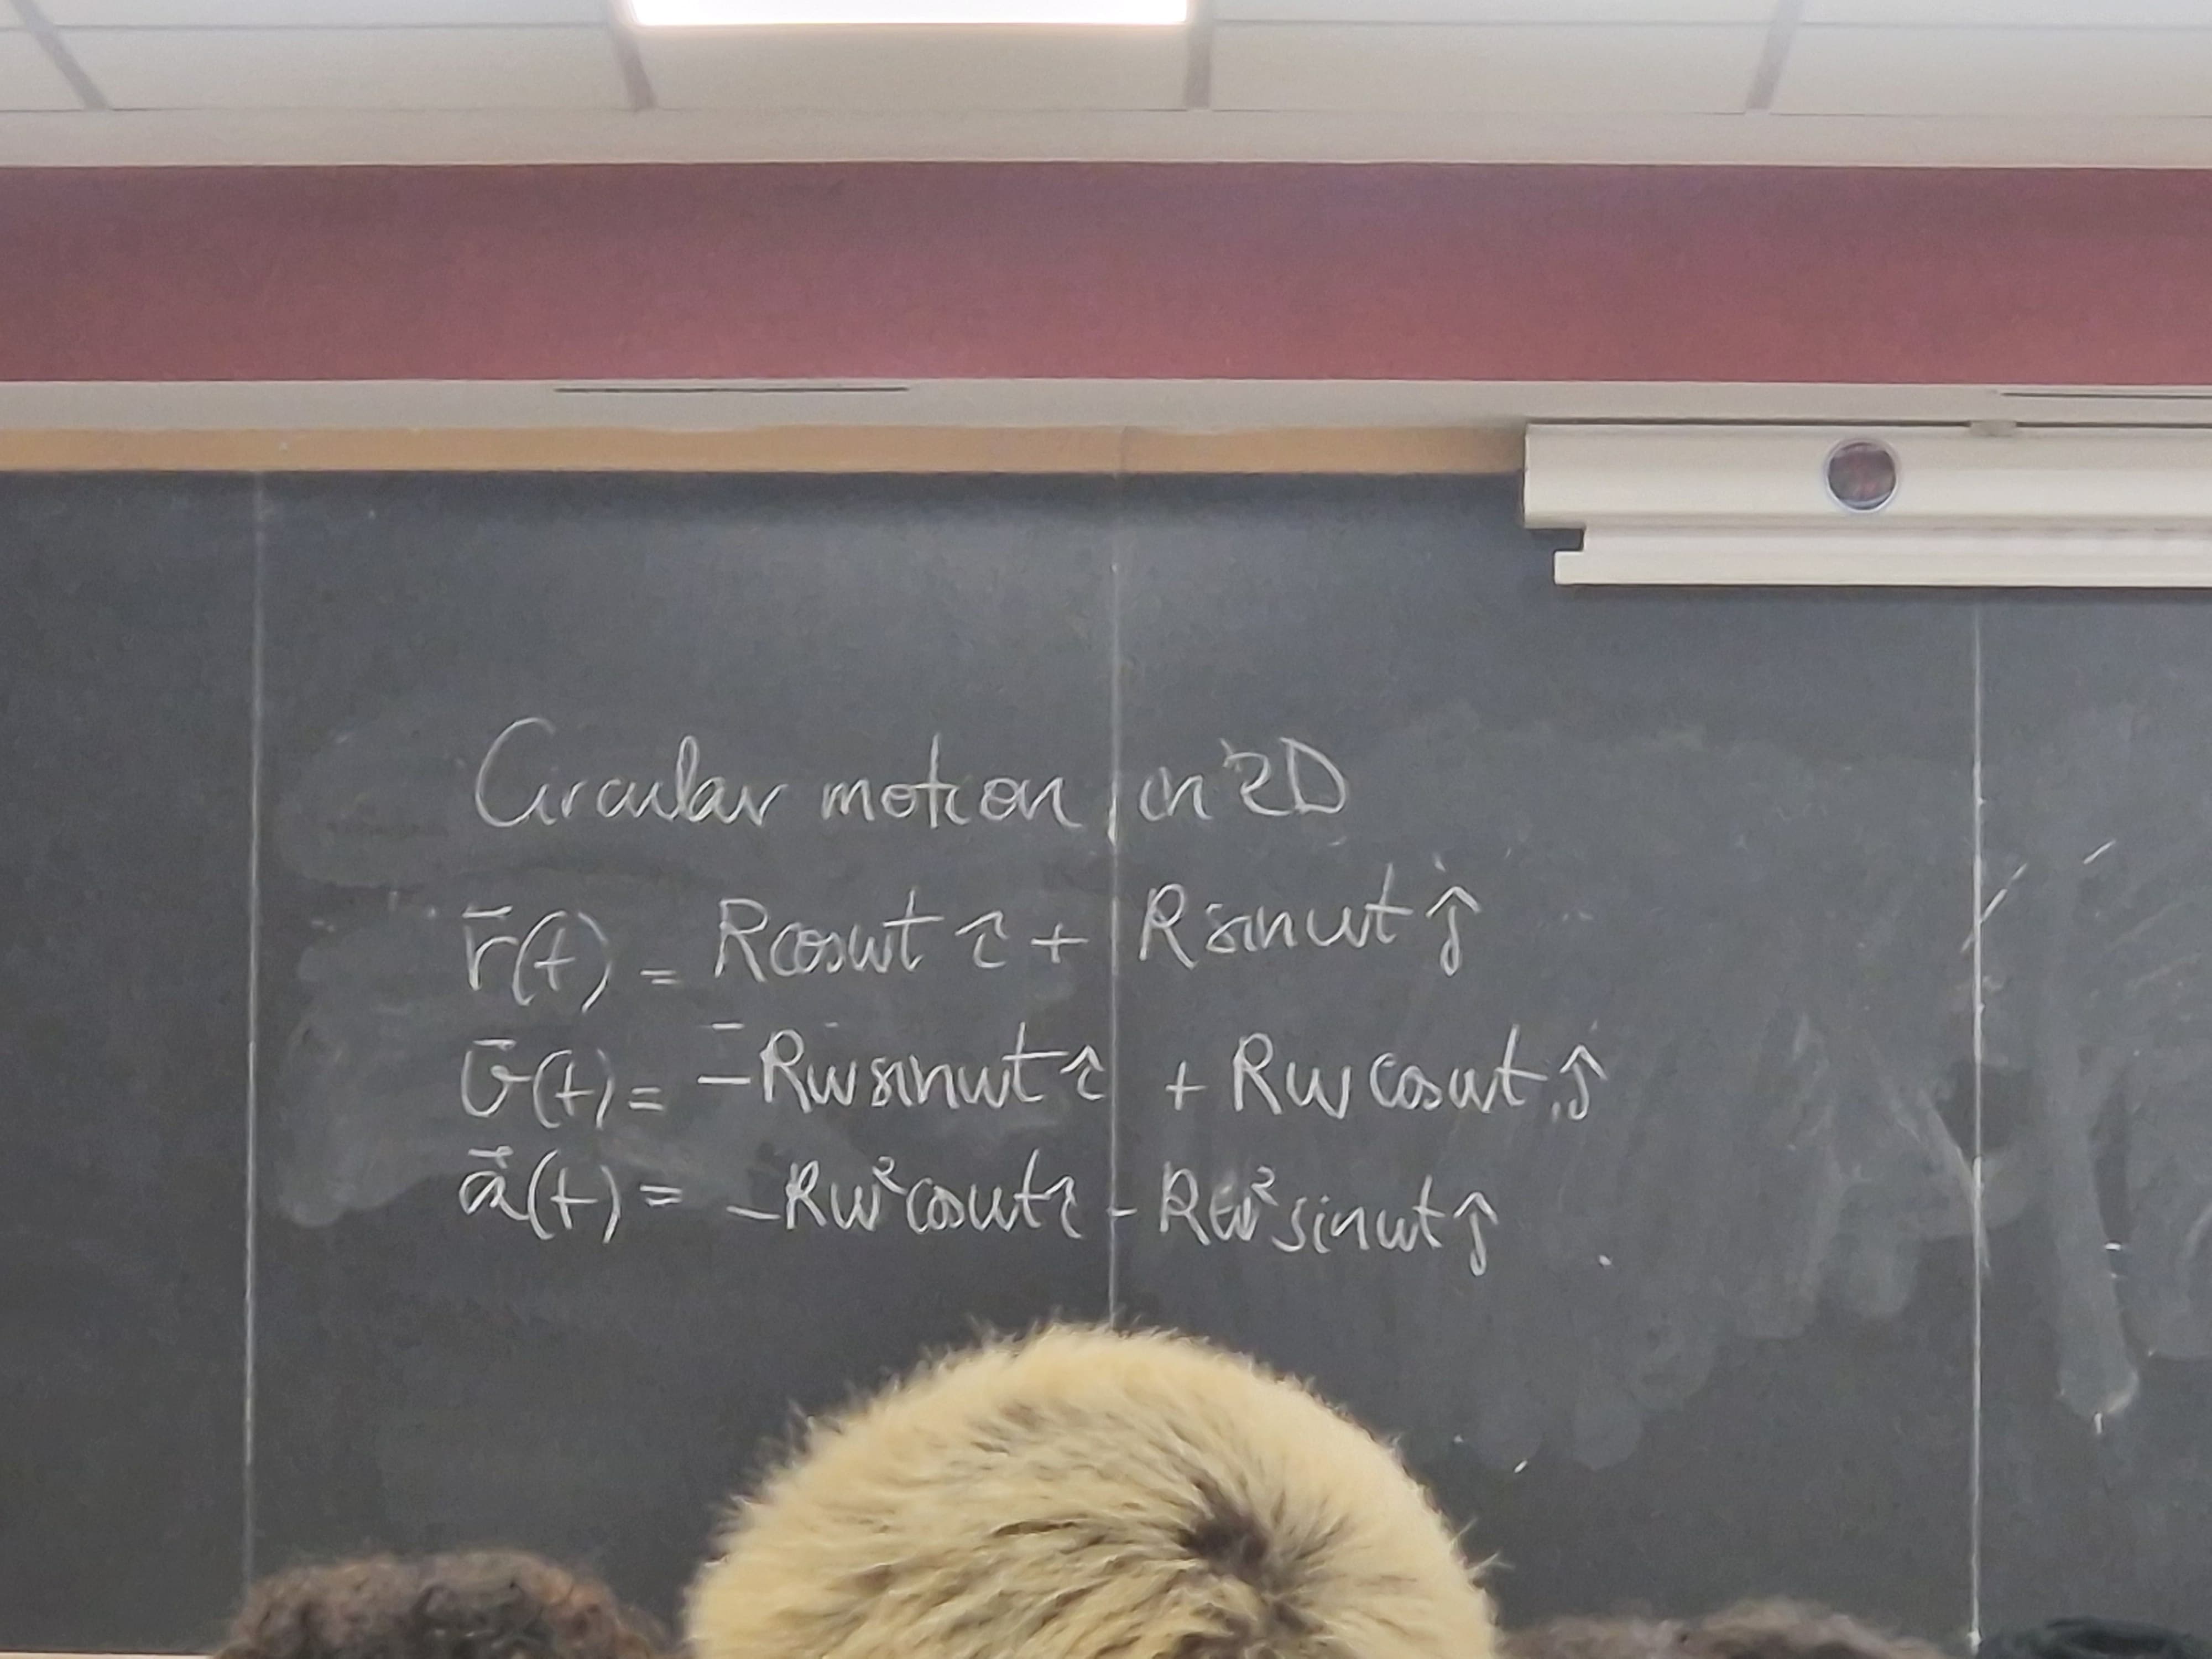 Circular motion in 2D
r⃗(t) = Rcosωt î + R sinωt ĵ
v⃗(t) = -Rω sinωt î + Rω cosωt ĵ
a⃗(t) = -Rω²cosωt î - Rω²sinωt ĵ